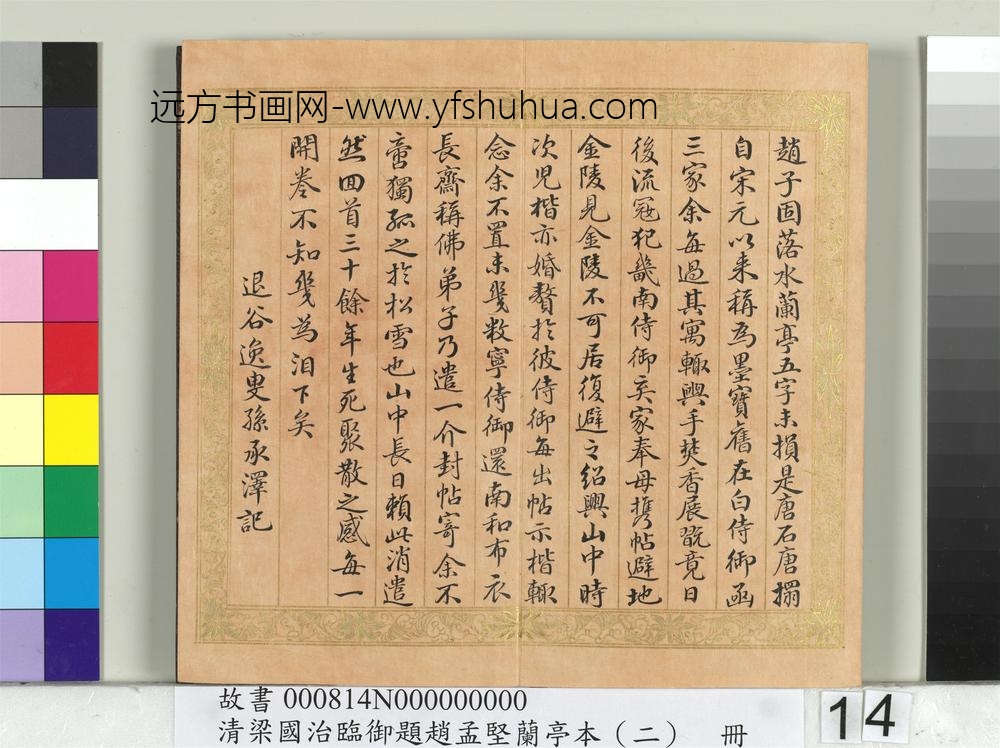 远方书画网-www.yfshuhua.com
趙子固落水蘭亭五字未損是唐石唐搨
自宋元以来稱為墨寶舊在白侍御函
三家余每過其寓輒興手焚香展翫竟日
後流冦犯畿南侍御棄家奉母携帖避地
金陵見金陵不可居復避之紹興山中時
次児楷亦婚贅於彼侍御每出帖示楷輒
念余不置未幾敉寧侍御還南和布衣
長齋稱佛弟子乃遣一介封帖寄余不
啻獨孤之於松雪也山中長日賴此消遣
然回首三十餘年生死聚散之感每一
開卷不知幾為泪下矣
退谷逸叟孫承澤記
故書 000814N000000000
清梁國治臨御題趙孟堅蘭亭本（二） 冊
14